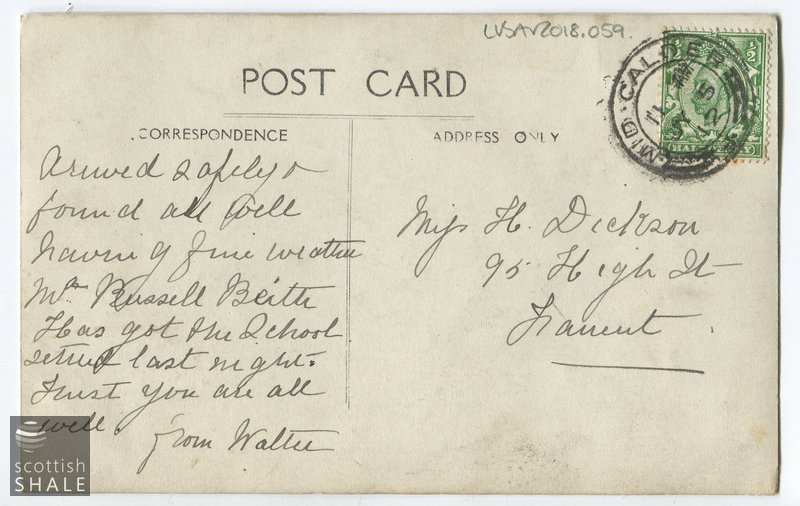 LVSAV2018.059.
POST CARD
CORRESPONDENCE
ADDRESS ONLY
MID-CALDER
½
½
HALFPENNY
Arrived safely &
found all well
having fine weather
Mr Russell Beith
Has got the School
settled last night.
Trust you are all
well.
from Walter
Miss H. Dickson
95 High St
Tranent.
scottish
SHALE